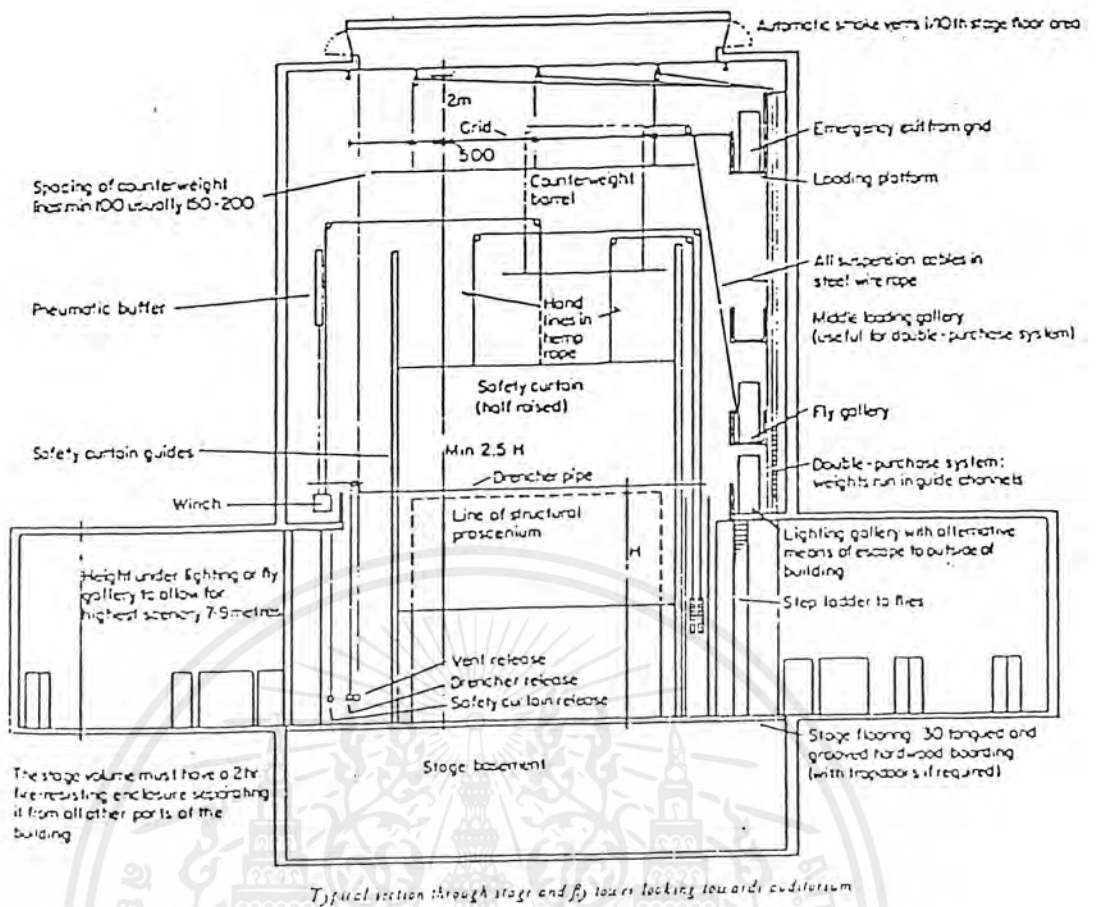 Automatic smoke vents 1/10th stage floor area
2m
Grid
500
Emergency exit from grid
Loading platform
Spacing of counterweight
lines: min 100 usually 150-200
Counterweight
barrel
All suspension cables in
steel wire rope
Pneumatic buffer
Hand
lines in
hemp
rope
Middle loading gallery
(useful for double-purchase system)
Safety curtain
(half raised)
Fly gallery
Safety curtain guides
Min 2.5 H
Drencher pipe
Double-purchase system:
weights run in guide channels
Winch
Line of structural
proscenium
H
Lighting gallery with alternative
means of escape to outside of
building
Height under lighting or fly
gallery to allow for
highest scenery 7-9metres
Step ladder to flies
Vent release
Drencher release
Safety curtain release
Stage flooring: 30 tongued and
grooved hardwood boarding
(with trapdoors if required)
Stage basement
The stage volume must have a 2hr
fire-resisting enclosure separating
it from all other parts of the
building
Typical section through stage and fly tower looking towards auditorium